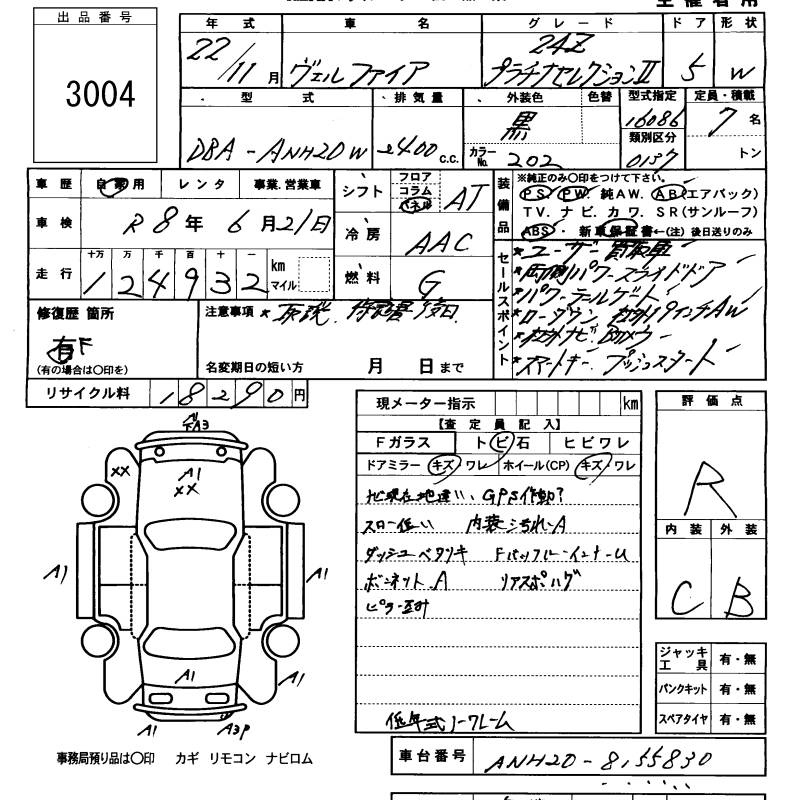 出品番号
3004
年式 車名 グレード ドア 形状
22/11月 ヴェルファイア 24Z プラチナセレクションⅡ 5 W
型式 排気量 外装色 色替 型式指定 定員・積載
DBA-ANH20W 2400 c.c. 黒 16086 7名
カラーNo. 202 類別区分 0137 トン
車歴 自家用 レンタ 事業.営業車
車検 R8年6月21日
走行 十万 万 千 百 十 一
124932 km マイル
シフト フロア コラム パネル AT
冷房 AAC
燃料 G
装備品
※純正のみ○印をつけて下さい。
PS PW. 純AW. AB(エアバック)
TV. ナビ. カワ. SR(サンルーフ)
ABS・ 新車保証書←(注) 後日送りのみ
セールスポイント
*ユーザー買取車
*両側パワースライドドア
*パワーテールゲート
*ローダウン 社外19インチAW
*社外ナビ
*スマートキー プッシュスタート
修復歴 箇所
有
(有の場合は○印を)
注意事項 * 取説. 保証書後日
名変期日の短い方 月 日まで
リサイクル料 18290円
現メーター指示 km
【査定員記入】
Fガラス トビ石 ヒビワレ
ドアミラー キズ・ワレ ホイール(CP) キズ・ワレ
GPS作動?
スロー低い 内装ヨゴレA
ダッシュベタツキ FバックパネルインナーU
ボンネットA
低年式ノークレーム
評価点
R
内装 外装
C B
ジャッキ工具 有・無
パンクキット 有・無
スペアタイヤ 有・無
A3
XX
A1
XX
A1 A1
A1 A1
A1 A3P
事務局預り品は○印 カギ リモコン ナビロム
車台番号 ANH20-8155830